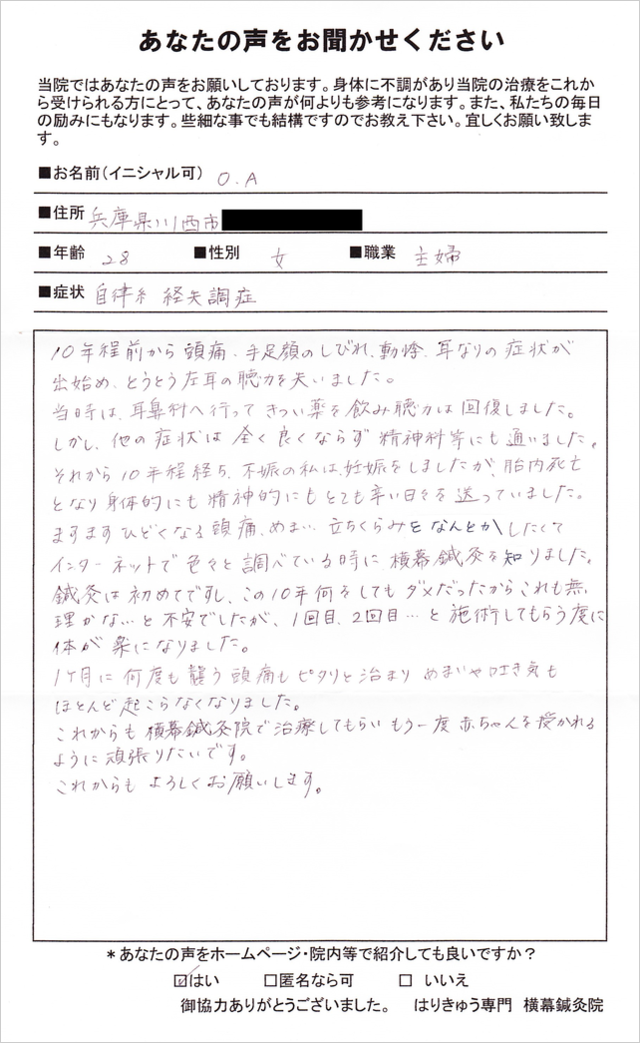 あなたの声をお聞かせください
当院ではあなたの声をお願いしております。身体に不調があり当院の治療をこれか
ら受けられる方にとって、あなたの声が何よりも参考になります。また、私たちの毎日
の励みにもなります。些細な事でも結構ですのでお教え下さい。宜しくお願い致しま
す。
■お名前(イニシャル可) O.A
■住所 兵庫県川西市
■年齢 28 ■性別 女 ■職業 主婦
■症状 自律系 経失調症
10年程前から頭痛、手足顔のしびれ、動悸、耳なりの症状が
出始め、とうとう左耳の聴力を失いました。
当時は、耳鼻科へ行って きつい薬を飲み聴力は回復しました。
しかし、他の症状は 全く良くならず 精神科等にも通いました。
それから10年程経ち、不妊の私は、妊娠をしましたが、胎内死亡
となり身体的にも精神的にもとても辛い日々を送っていました。
ますますひどくなる頭痛、めまい、立ちくらみを なんとかしたくて
インターネットで色々と調べている時に、横幕鍼灸を知りました。
鍼灸は初めてですし、この10年何をしてもダメだったからこれも無
理かな…と不安でしたが、1回目、2回目…と施術してもらう度に
体が楽になりました。
1ヶ月に何度も襲う頭痛もピタリと治まり めまいや吐き気も
ほとんど起こらなくなりました。
これからも横幕鍼灸院で治療してもらい もう一度 赤ちゃんを授かれる
ように頑張りたいです。
これからも よろしくお願いします。
*あなたの声をホームページ・院内等で紹介しても良いですか?
☑はい □匿名なら可 □ いいえ
御協力ありがとうございました。 はりきゅう専門 横幕鍼灸院